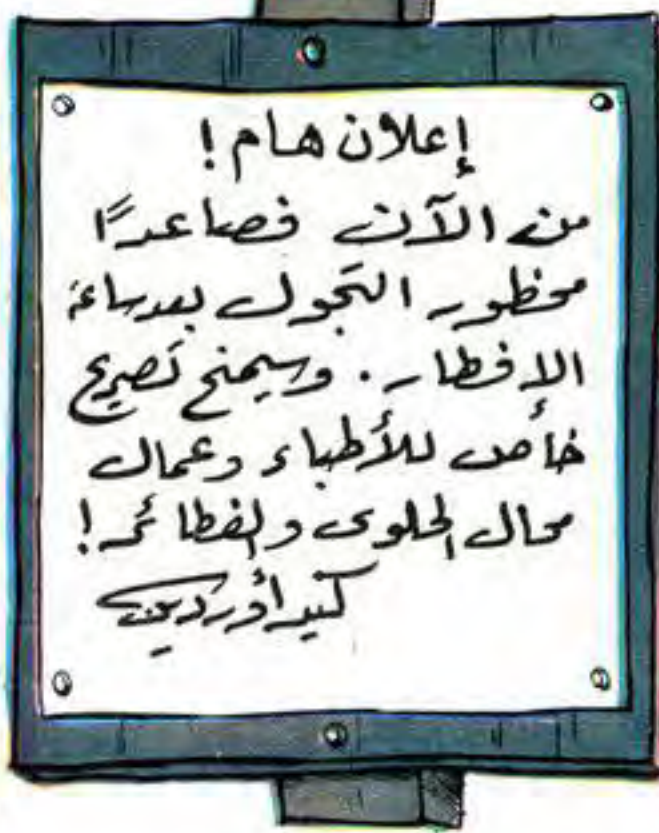 إعلان هام !
من الآن فصاعدًا
محظور التجول بعد ساعة
الإفطار . وسيمنح تصريح
خاص للأطباء وعمال
محال الحلوى والفطائر !